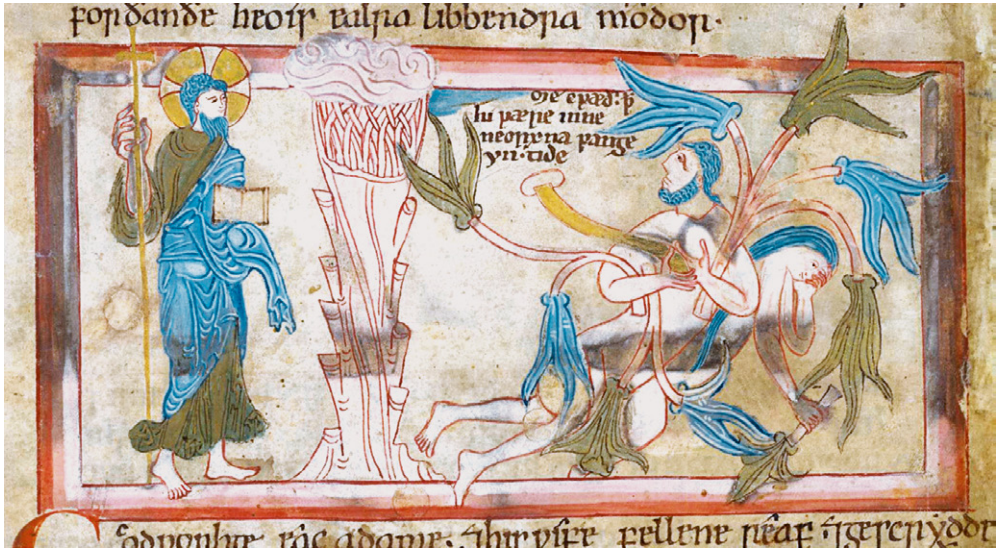 forðanðe heo is ealra libbendra modor·
cwæð· ꝥ
hi wære inne
neorxna wange
vii· tide
God worhte eac adame; ⁊ his wife fellene reaf ⁊ gescrydde